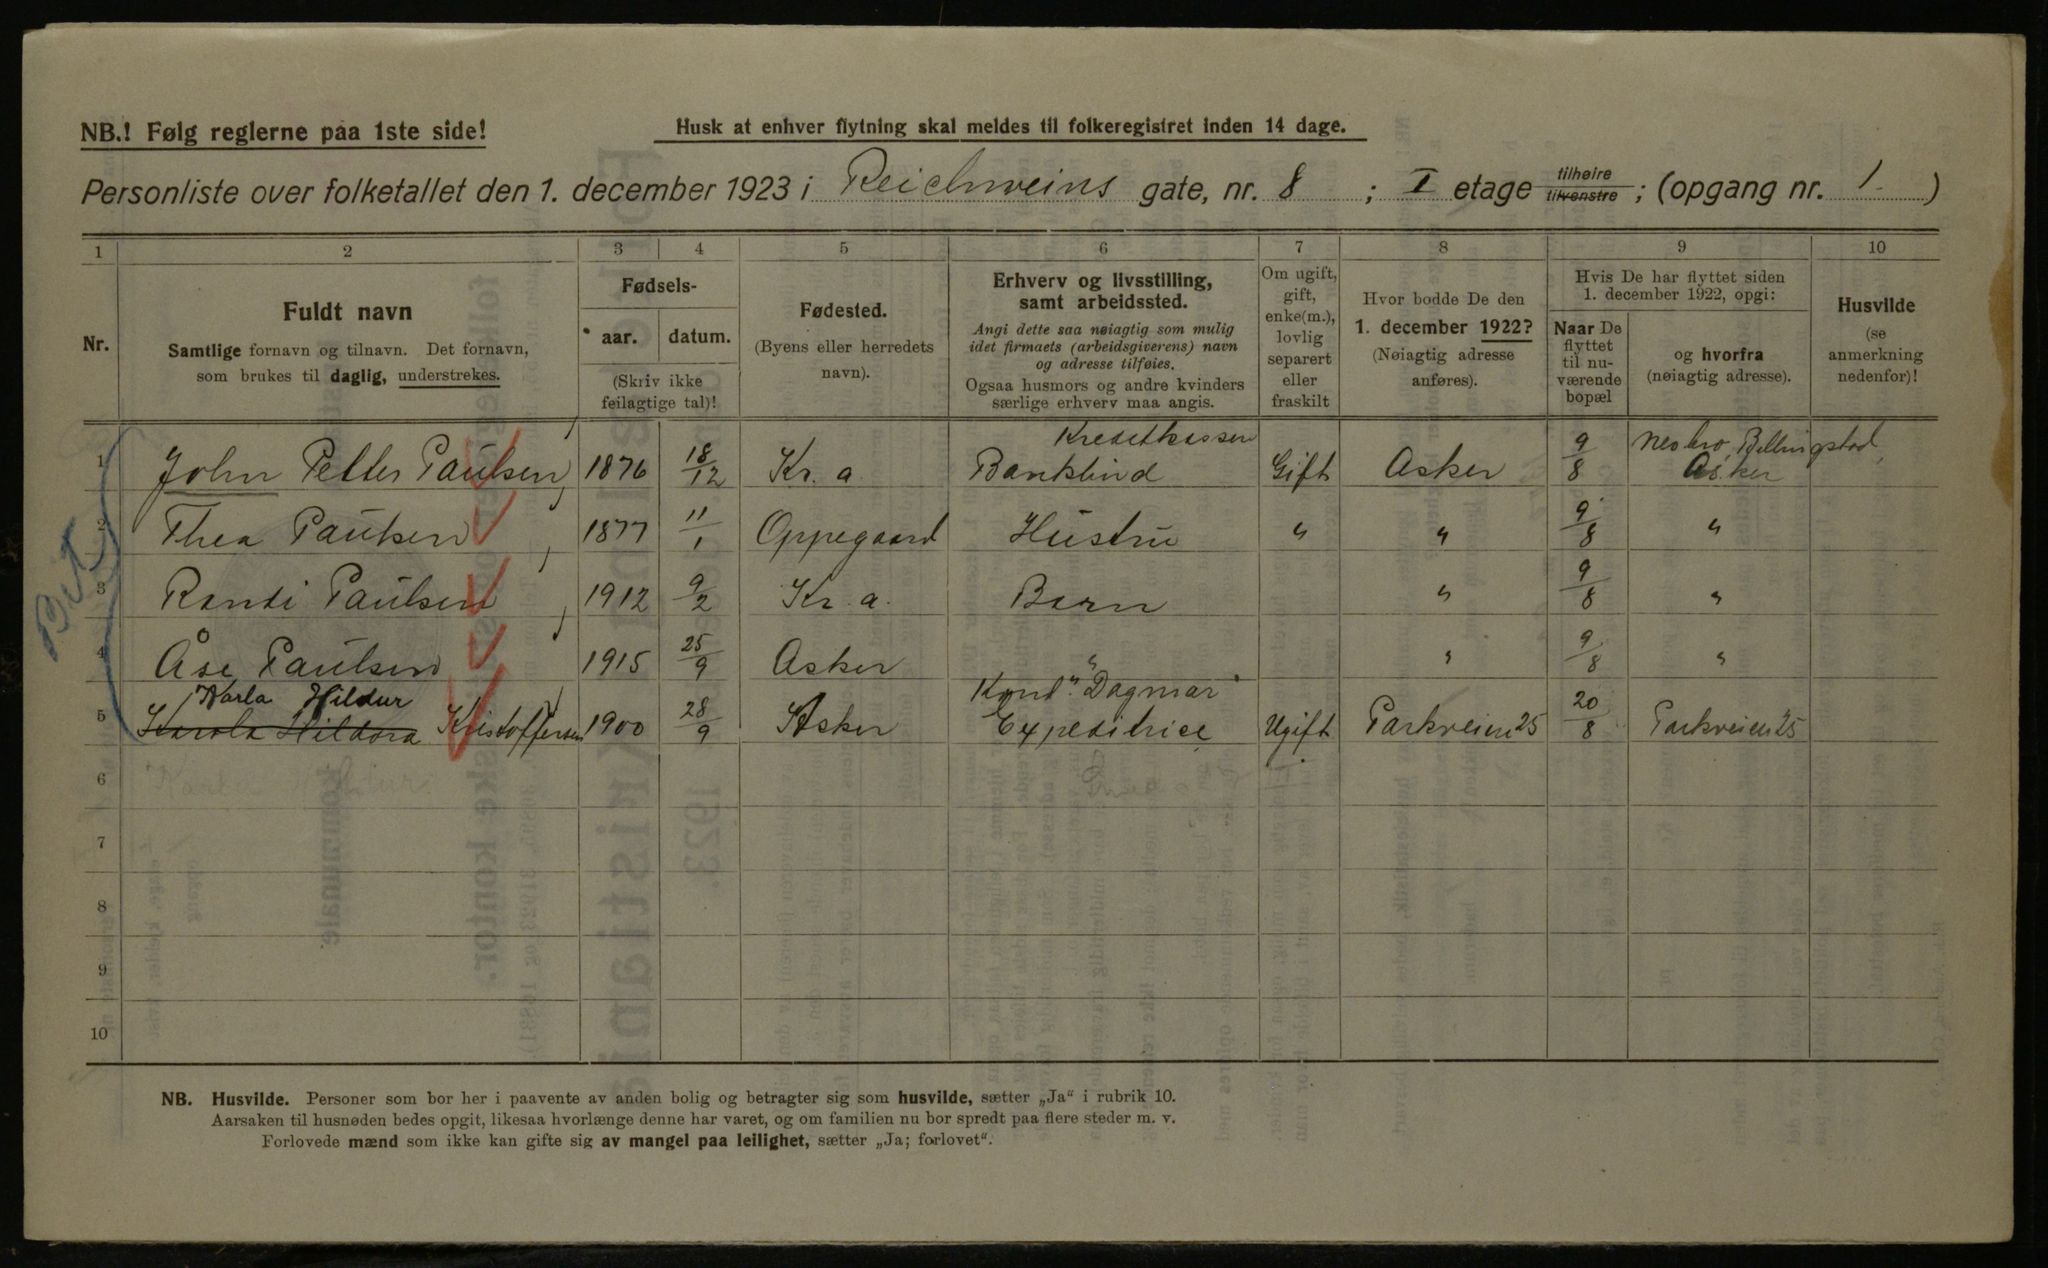 NB.! Følg reglerne paa 1ste side!
Husk at enhver flytning skal meldes til folkeregistret inden 14 dage.
Personliste over folketallet den 1. december 1923 i Reichweins gate, nr. 8 ; I etage tilhøire tilvenstre ; (opgang nr. 1. )
1 2 3 4 5 6 7 8 9 10
Nr.
Fuldt navn
Samtlige fornavn og tilnavn. Det fornavn,
som brukes til daglig, understrekes.
Fødsels-
aar. datum.
(Skriv ikke
feilagtige tal)!
Fødested.
(Byens eller herredets
navn).
Erhverv og livsstilling,
samt arbeidssted.
Angi dette saa nøiagtig som mulig
idet firmaets (arbeidsgiverens) navn
og adresse tilføies.
Ogsaa husmors og andre kvinders
særlige erhverv maa angis.
Om ugift,
gift,
enke(m.),
lovlig
separert
eller
fraskilt
Hvor bodde De den
1. december 1922?
(Nøiagtig adresse
anføres).
Hvis De har flyttet siden
1. december 1922, opgi:
Naar De
flyttet
til nu-
værende
bopæl
og hvorfra
(nøiagtig adresse).
Husvilde
(se
anmerkning
nedenfor)!
Kreditkassen Nesbro, Billingstad,
1 John Petter Paulsen, 1876 18/12 Kr. a. Bankbud Gift Asker 9/8 Asker
2 Thea Paulsen, 1877 11/1 Oppegaard Hustru " " 9/8 "
3 Randi Paulsen, 1912 9/2 Kr. a. Barn " 9/8 "
4 Åse Paulsen 1915 25/9 Asker " " 9/8 "
Karla Hildur Kond. "Dagmar"
5 Karola Hildora Kristoffersen 1900 28/9 Asker Expeditrice Ugift Parkveien 25 20/8 Parkveien 25
6 Karla Hildur
7
8
9
10
NB. Husvilde. Personer som bor her i paavente av anden bolig og betragter sig som husvilde, sætter „Ja“ i rubrik 10.
Aarsaken til husnøden bedes opgit, likesaa hvorlænge denne har varet, og om familien nu bor spredt paa flere steder m. v.
Forlovede mænd som ikke kan gifte sig av mangel paa leilighet, sætter „Ja; forlovet“.